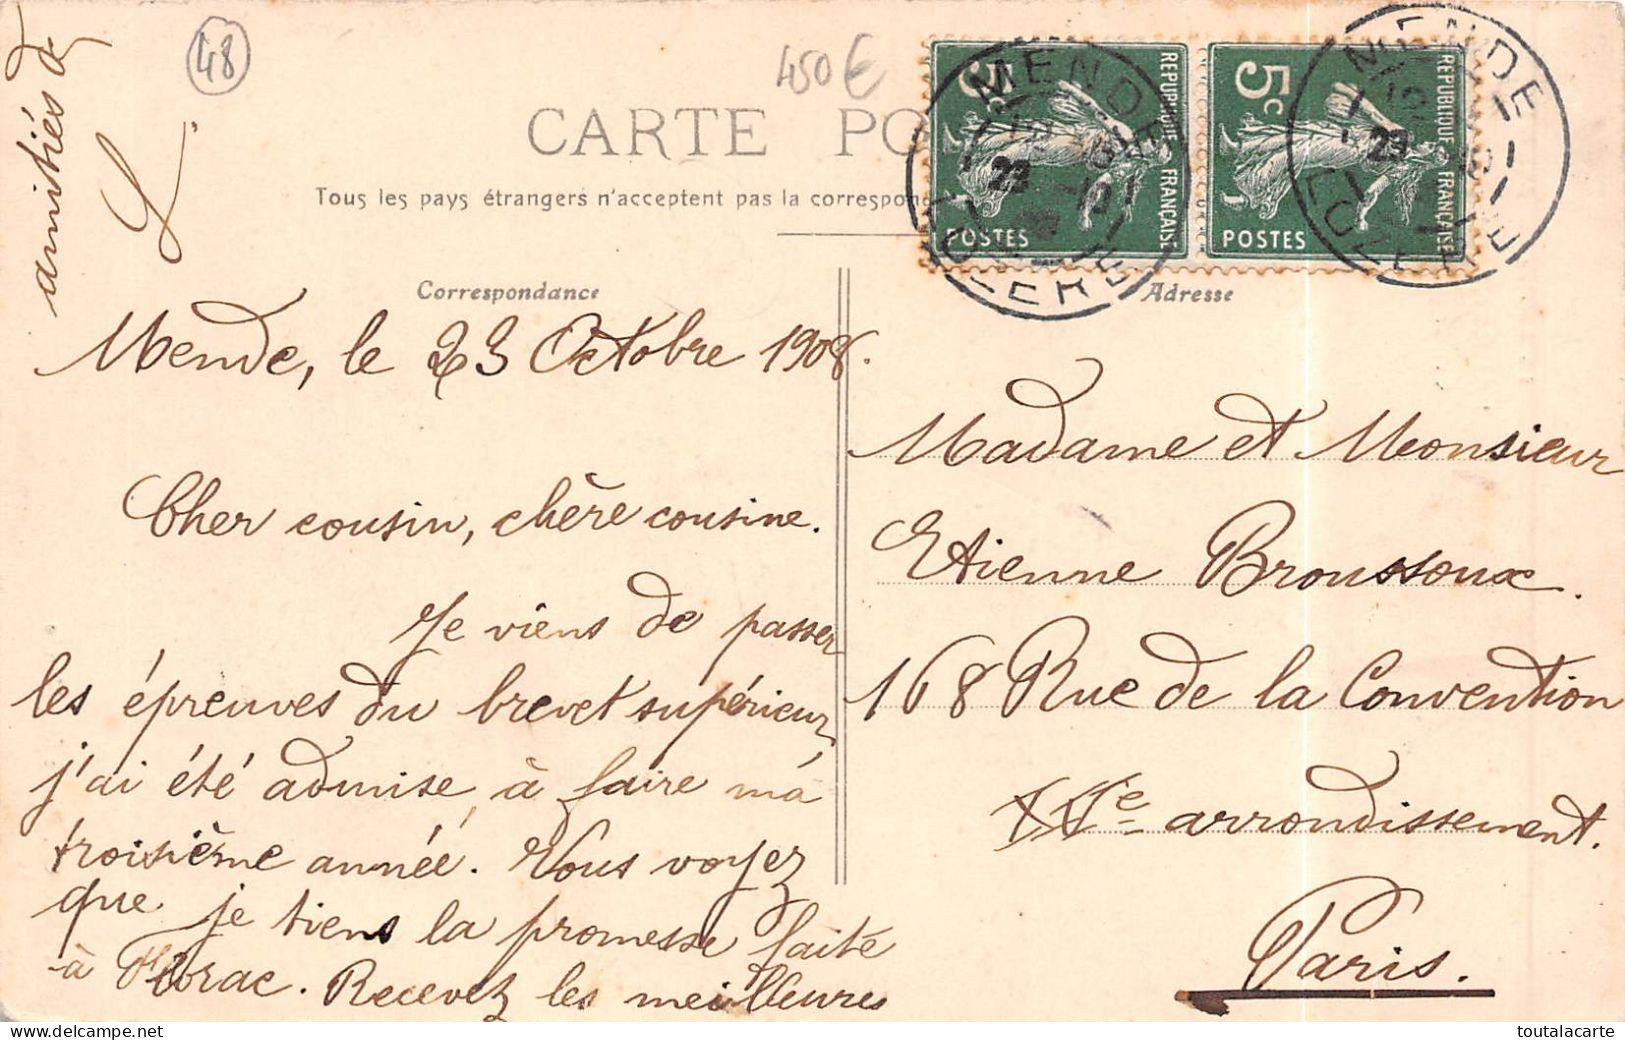 48
450€
CARTE PO
Tous les pays étrangers n'acceptent pas la correspon
Correspondance
Adresse
REPUBLIQUE FRANÇAISE
5c
POSTES
REPUBLIQUE FRANÇAISE
5c
POSTES
MENDE
23
LOZERE
MENDE
23
LOZERE
Mende, le 23 Octobre 1908.
Cher cousin, chère cousine.
Je viens de passer
les épreuves du brevet supérieur
j'ai été admise à faire ma
troisième année. Vous voyez
que je tiens la promesse faite
à Florac. Recevez les meilleures
amitiés d
Madame et Monsieur
Etienne Broussoux.
168 Rue de la Convention
XVe arrondissement.
Paris.
toutalacarte